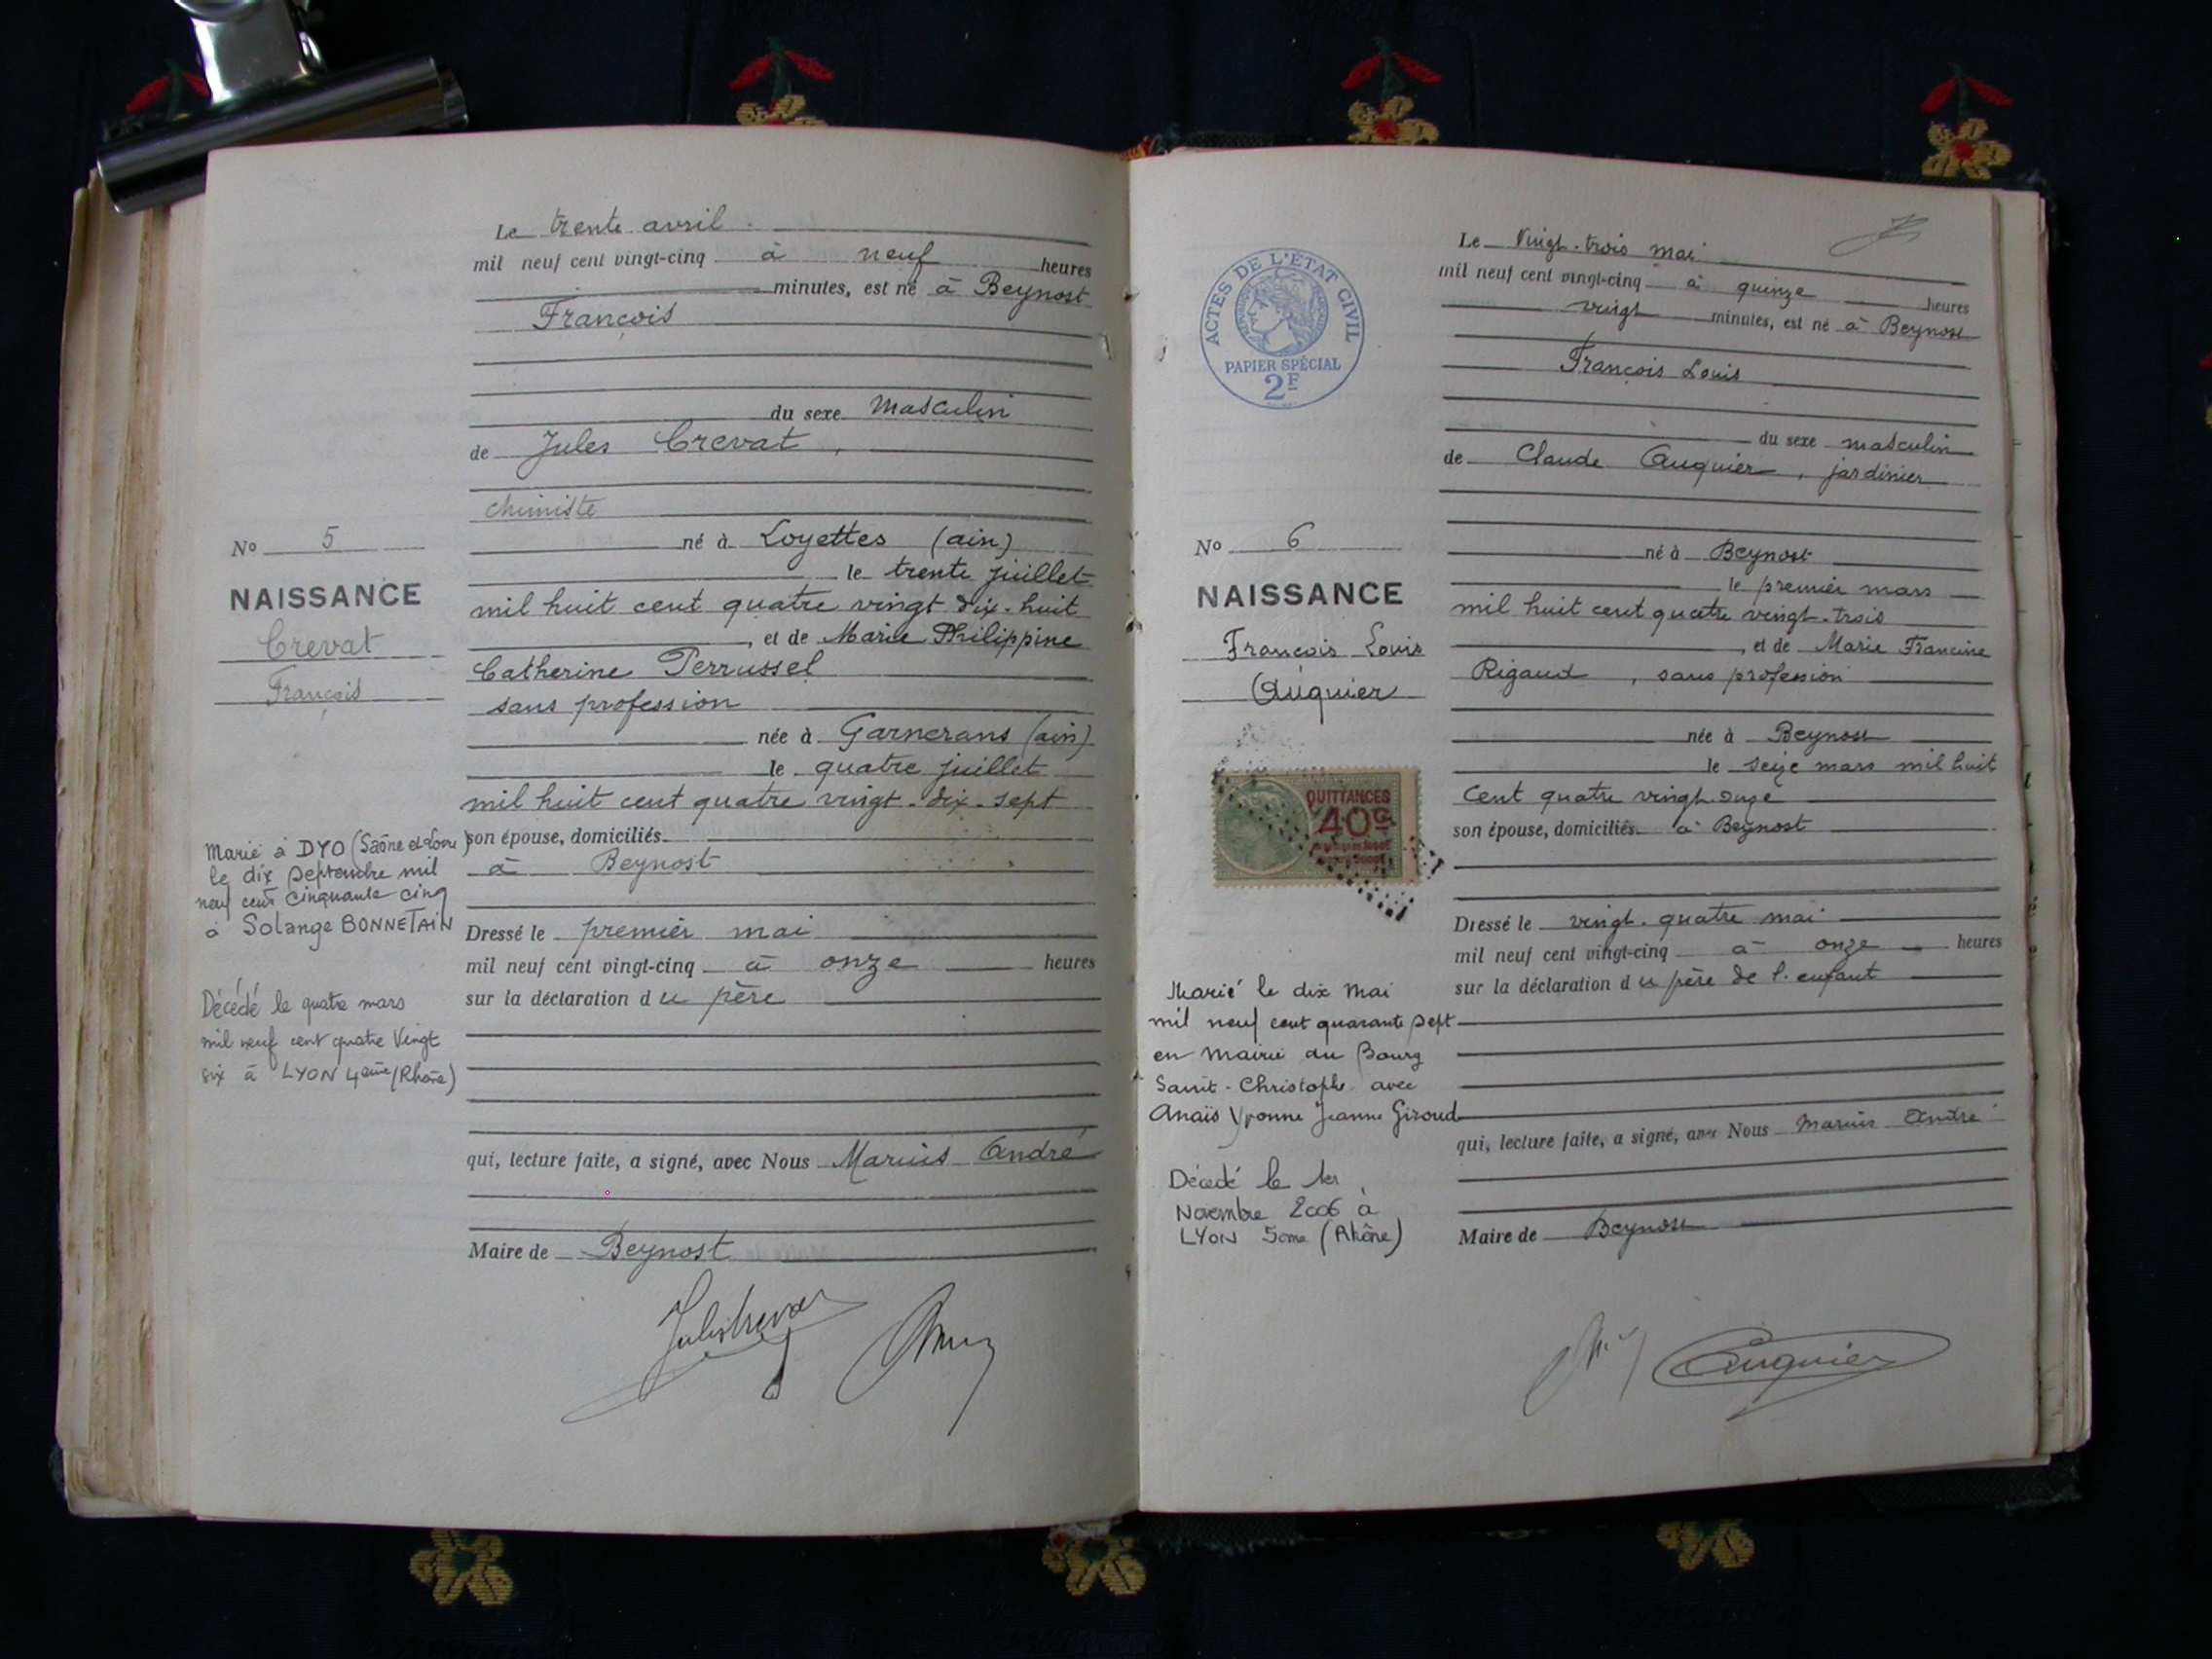 Le trente avril
mil neuf cent vingt-cinq à neuf heures
minutes, est né à Beynost
François
du sexe Masculin
de Jules Crevat,
chimiste
né à Loyettes (ain)
le trente juillet
mil huit cent quatre vingt dix-huit
, et de Marie Philippine
Catherine Perrussel
sans profession
née à Garnerans (ain)
le quatre juillet
mil huit cent quatre vingt-dix-sept
son épouse, domiciliés
à Beynost
Dressé le premier mai
mil neuf cent vingt-cinq à onze heures
sur la déclaration du père
qui, lecture faite, a signé, avec Nous Marius André
Maire de Beynost
No 5
NAISSANCE
Crevat
François
Marié à DYO (Saône et Loire)
le dix septembre mil
neuf cent cinquante cinq
à Solange BONNETAIN
Décédé le quatre mars
mil neuf cent quatre Vingt
six à LYON 4ème (Rhône)
Jules Crevat
ACTES DE L'ÉTAT CIVIL
PAPIER SPÉCIAL
2F
No 6
NAISSANCE
François Louis
Auquier
QUITTANCES
40c
Marié le dix Mai
mil neuf cent quarante sept
en Mairie du Bourg
Saint-Christophe avec
Anaïs Yvonne Jeanne Giroud
Décédé le 1er
Novembre 2006 à
LYON 5eme (Rhône)
Le Vingt-trois mai
mil neuf cent vingt-cinq à quinze heures
vingt minutes, est né à Beynost
François Louis
du sexe masculin
de Claude Auquier, jardinier
né à Beynost
le premier mars
mil huit cent quatre vingt-trois
, et de Marie Francine
Rigaud, sans profession
née à Beynost
le seize mars mil huit
cent quatre vingt onze
son épouse, domiciliés à Beynost
Dressé le vingt-quatre mai
mil neuf cent vingt-cinq à onze heures
sur la déclaration du père de l'enfant
qui, lecture faite, a signé, avec Nous Marius André
Maire de Beynost
Auquier